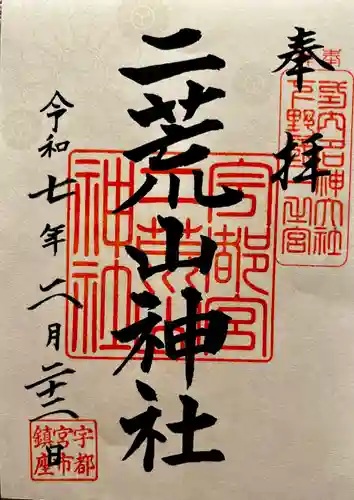 奉拝
奉
式内名神大社
下野國一之宮
二荒山神社
宇都宮
二荒山
神社
令和七年二月二十二日
宇都
宮市
鎮座